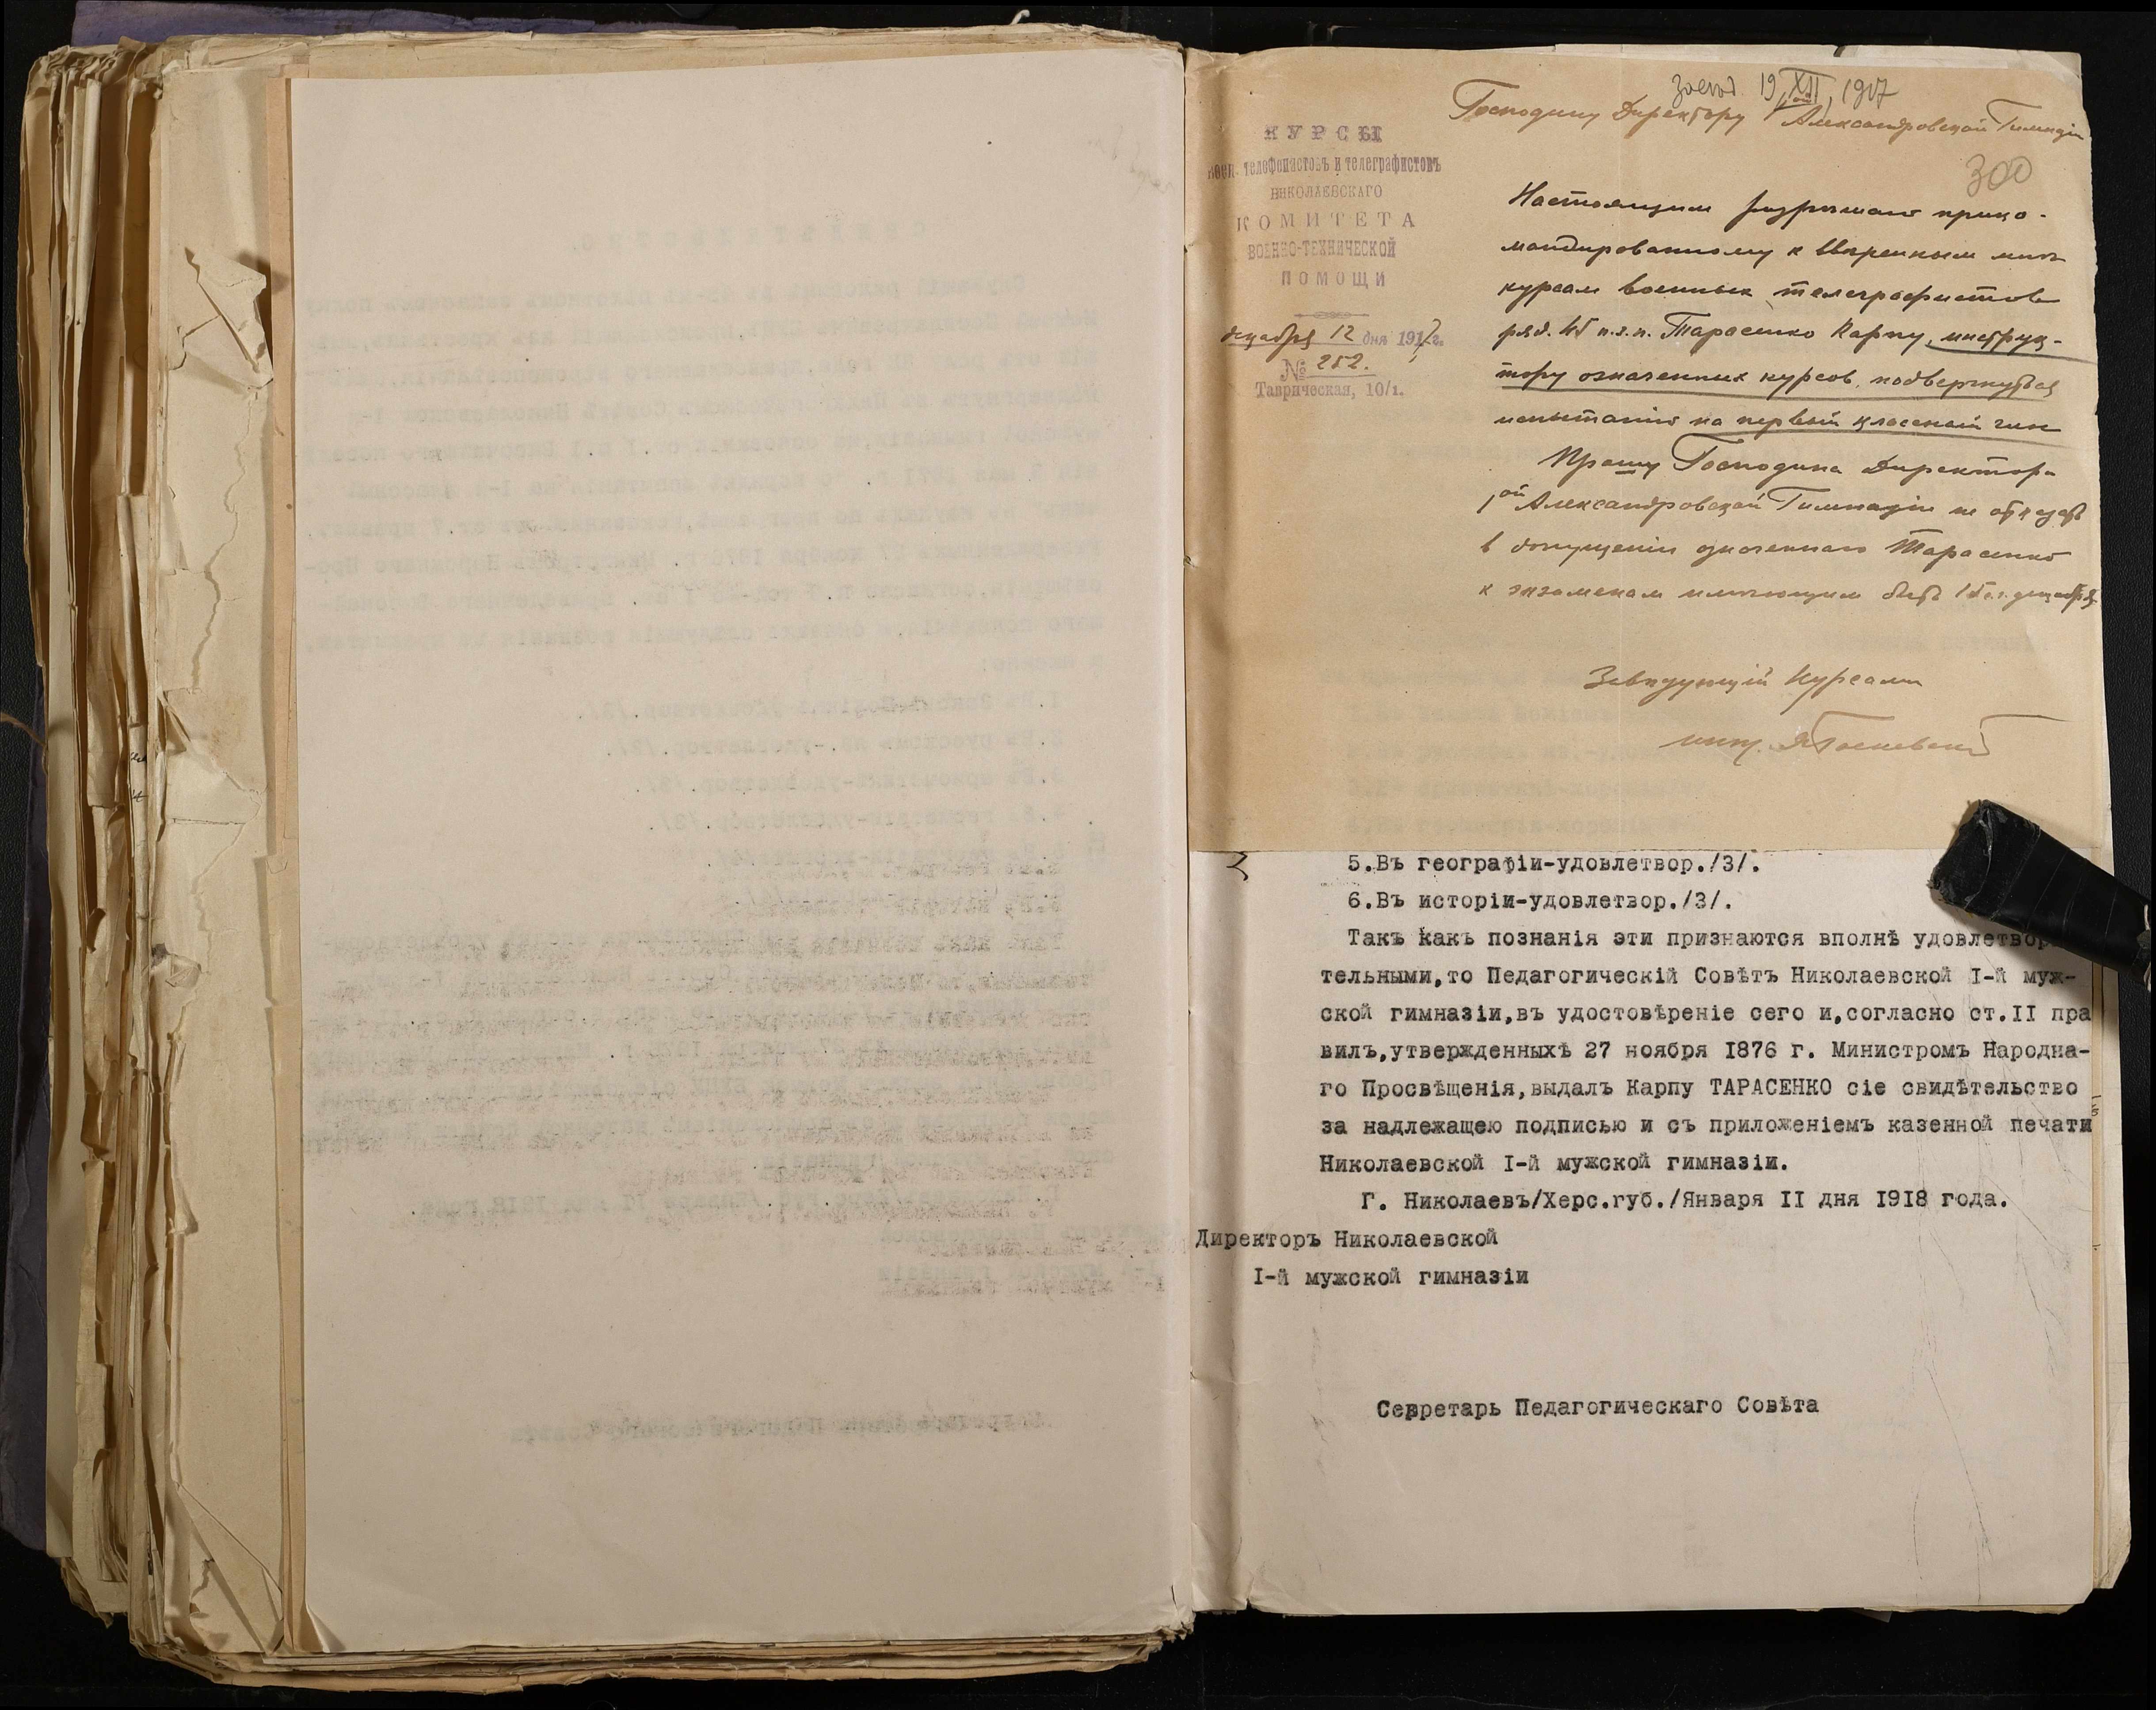 Засѣд 19 XII, 1917
Господину Директору 1ой Александровской Гимназіи
300
КУРСЫ
воен. телефонистовъ и телеграфистовъ
НИКОЛАЕВСКАГО
КОМИТЕТА
ВОЕННО-ТЕХНИЧЕСКОЙ
ПОМОЩИ
декабря 12 дня 1917г.
№ 252.
Таврическая, 10/1.
Настоящим разрешаю прико-
мандированному к ввѣренным мнѣ
курсам военных телеграфистов
ряд. 45 п.з.п. Тарасенко Карпу, инструк-
тору означенных курсов, подвергнуться
испытанію на первый классный чин
Прошу Господина Директора
1ой Александровской Гимназіи не отказать
в допущеніи означеннаго Тарасенко
к экзаменам имѣющим быть 15 с.г. декабря
Завѣдующій Курсами
инж.
5.Въ географіи-удовлетвор./3/.
6.Въ исторіи-удовлетвор./3/.
Такъ какъ познанія эти признаются вполнѣ удовлетвор
тельными,то Педагогическій Совѣтъ Николаевской I-й муж-
ской гимназіи,въ удостовѣреніе сего и,согласно ст.II пра
вилъ,утвержденныхъ 27 ноября 1876 г. Министромъ Народна-
го Просвѣщенія,выдалъ Карпу ТАРАСЕНКО сіе свидѣтельство
за надлежащею подписью и съ приложеніемъ казенной печати
Николаевской I-й мужской гимназіи.
Г. Николаевъ/Херс.губ./Января II дня I918 года.
Директоръ Николаевской
I-й мужской гимназіи
Секретарь Педагогическаго Совѣта